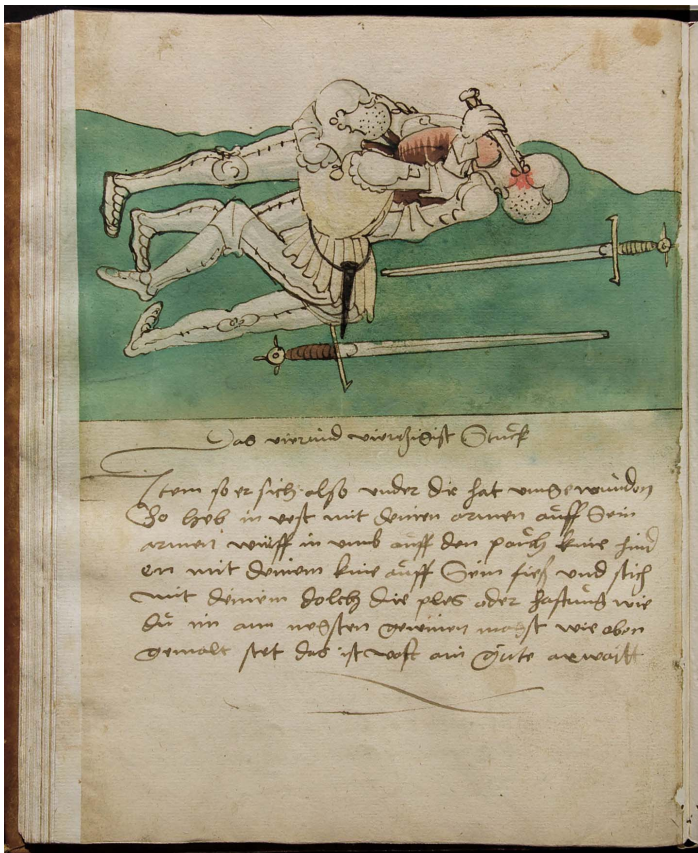 Das vierund vierczigist Stuck
Item so er sich also under dir hat umbgewunden
So heb in vest mit deinen armen auff Sein
armen wirff in umb auff den pauch knie hind
en mit deinem knie auff Sein fies und stich
mit deinem dolch die ples oder hafftung wie
du im am nechsten gewinen magst wie oben
gemalt stet das ist vast ain gute arwaitt